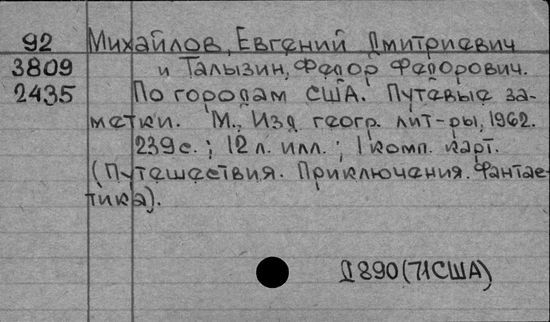 92 Михайлов, Евгений Дмитриевич
3809 и Талызин, Федор Федорович.
2435 По городам США. Путевые за-
метки. М., Изд геогр. лит-ры, 1962.
239с.; 12 л. илл.; 1 комп. карт.
(Путешествия. Приключения. Фантас-
тика).
Д890(71США)